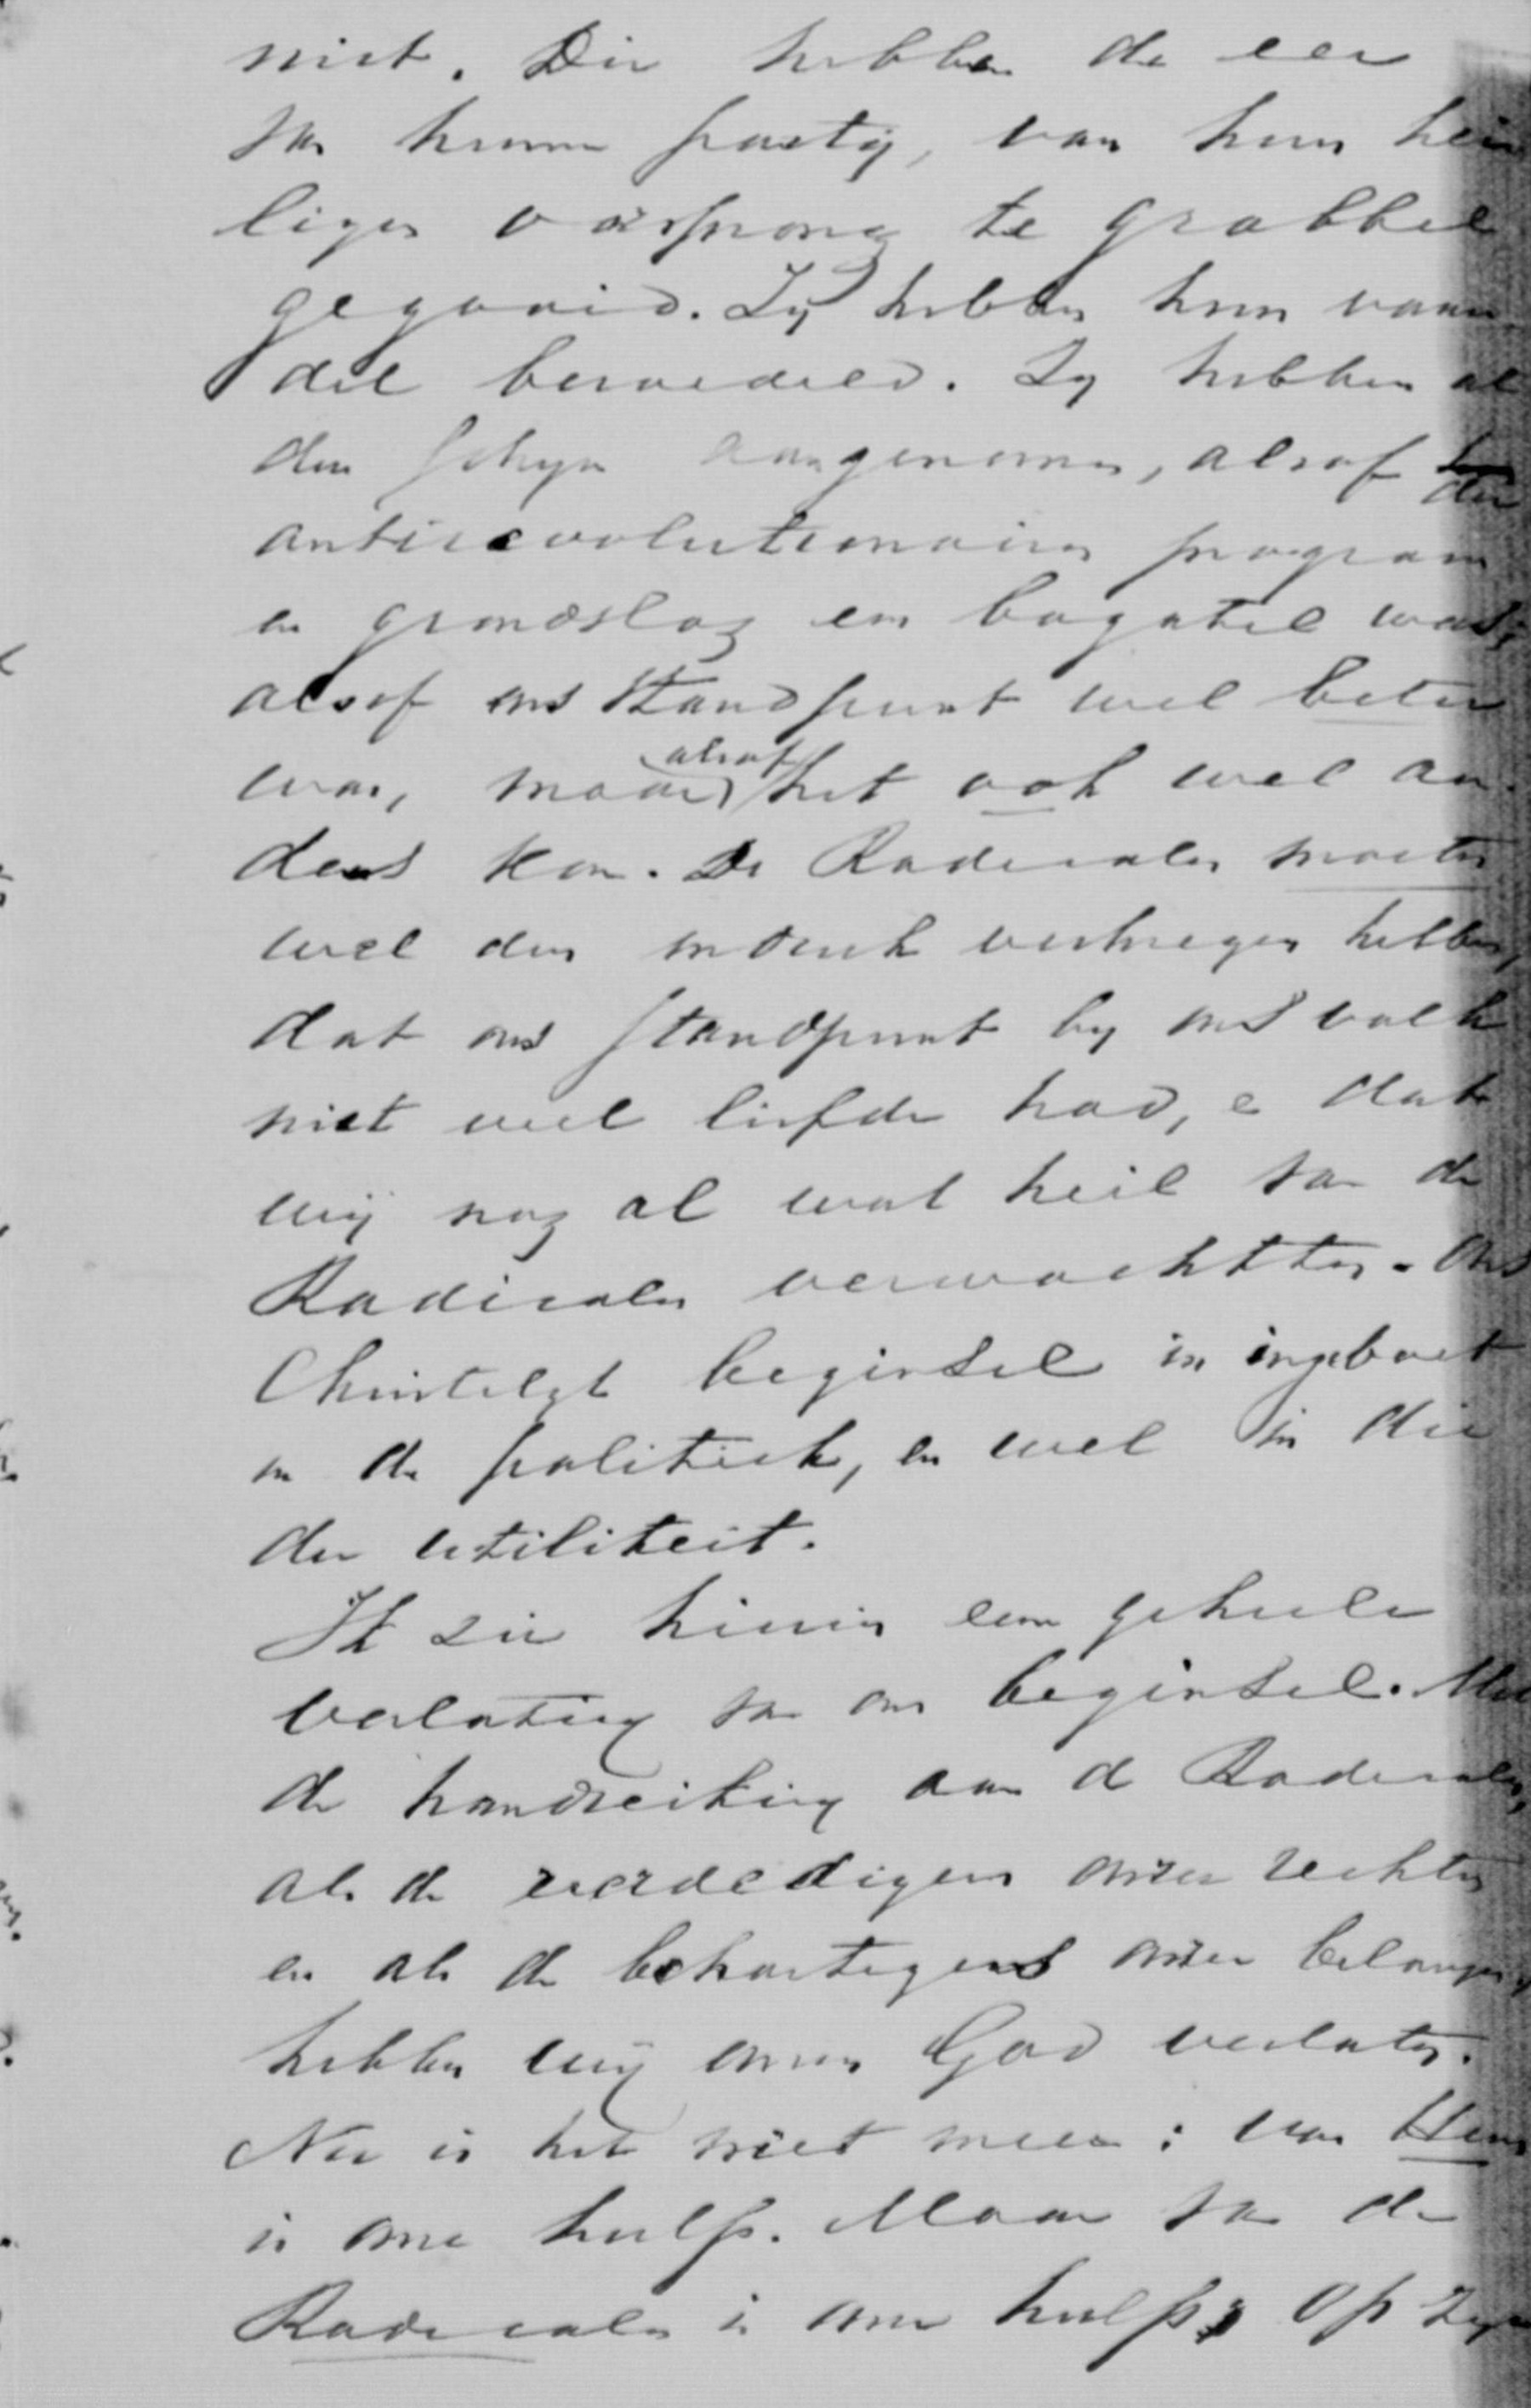 niet. Die hebben de eer
van hunne partij, van hun hei
ligen oorsprong te grabbel
gegooid. Zij hebben hun vaan
del bezoedeld. Zij hebben al
den schijn aangenomen, alsof
den
antirevolutionairen program
en grondslag een bagatel was,
alsof ons standpunt wel beter
was, maar alsof het ook wel an
ders kon. De Radicalen moeten
wel den indruk verkregen hebben,
dat ons standpunt bij ons volk
niet veel liefde had, e dat
wij nog al wat heil van de
Radicalen verwachtten. Ons
Christelijk beginsel is ingeboet
in de politiek, en wel in die
der utiliteit.
Ik zie hierin een geheele
verlating van ons beginsel. Met
de handreiking aan d Radicalen,
als de verdedigers onzer rechten
en als de behartigers onzer belangen,
hebben wij onzen God verlaten.
Nu is het niet meer: van Hem
is onze hulp. Maar van de
Radicalen is onze hulp; op zijn